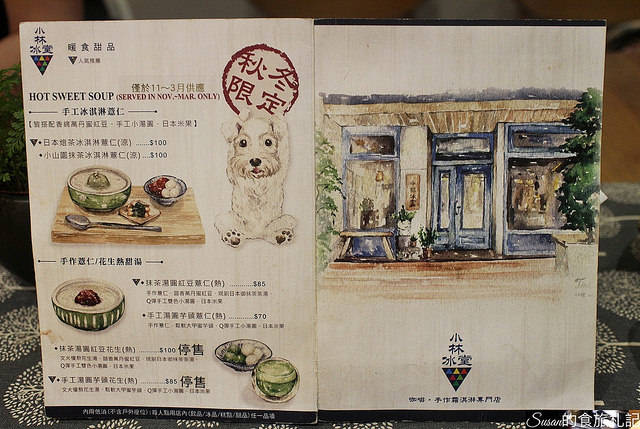 小林冰堂
暖食甜品
▼人氣推薦
秋冬限定
僅於11~3月供應
HOT SWEET SOUP (SERVED IN NOV.~MAR. ONLY)
手工冰淇淋薏仁
【皆搭配香綿萬丹蜜紅豆、手工小湯圓、日本米果】
▼•日本焙茶冰淇淋薏仁(涼) .....$100
•小山園抹茶冰淇淋薏仁(涼) ....$100
手作薏仁/花生熱甜湯
▼•抹茶湯圓紅豆薏仁(熱) ..............$85
Q彈手工雙色小湯圓、日本米果
•手工湯圓芋頭薏仁(熱) ..............$70
手作薏仁、鬆軟大甲蜜芋頭、Q彈手工小湯圓、日本米果
•抹茶湯圓紅豆花生(熱) ......$100 停售
Q彈手工雙色小湯圓、日本米果
▼•手工湯圓芋頭花生(熱) ......$85 停售
內用低消(不含戶外座位):每人點用店內(飲品/冰品/糕點/甜品)任一品項
小林冰堂
咖啡•手作霜淇淋專門店
Susan的食旅札記